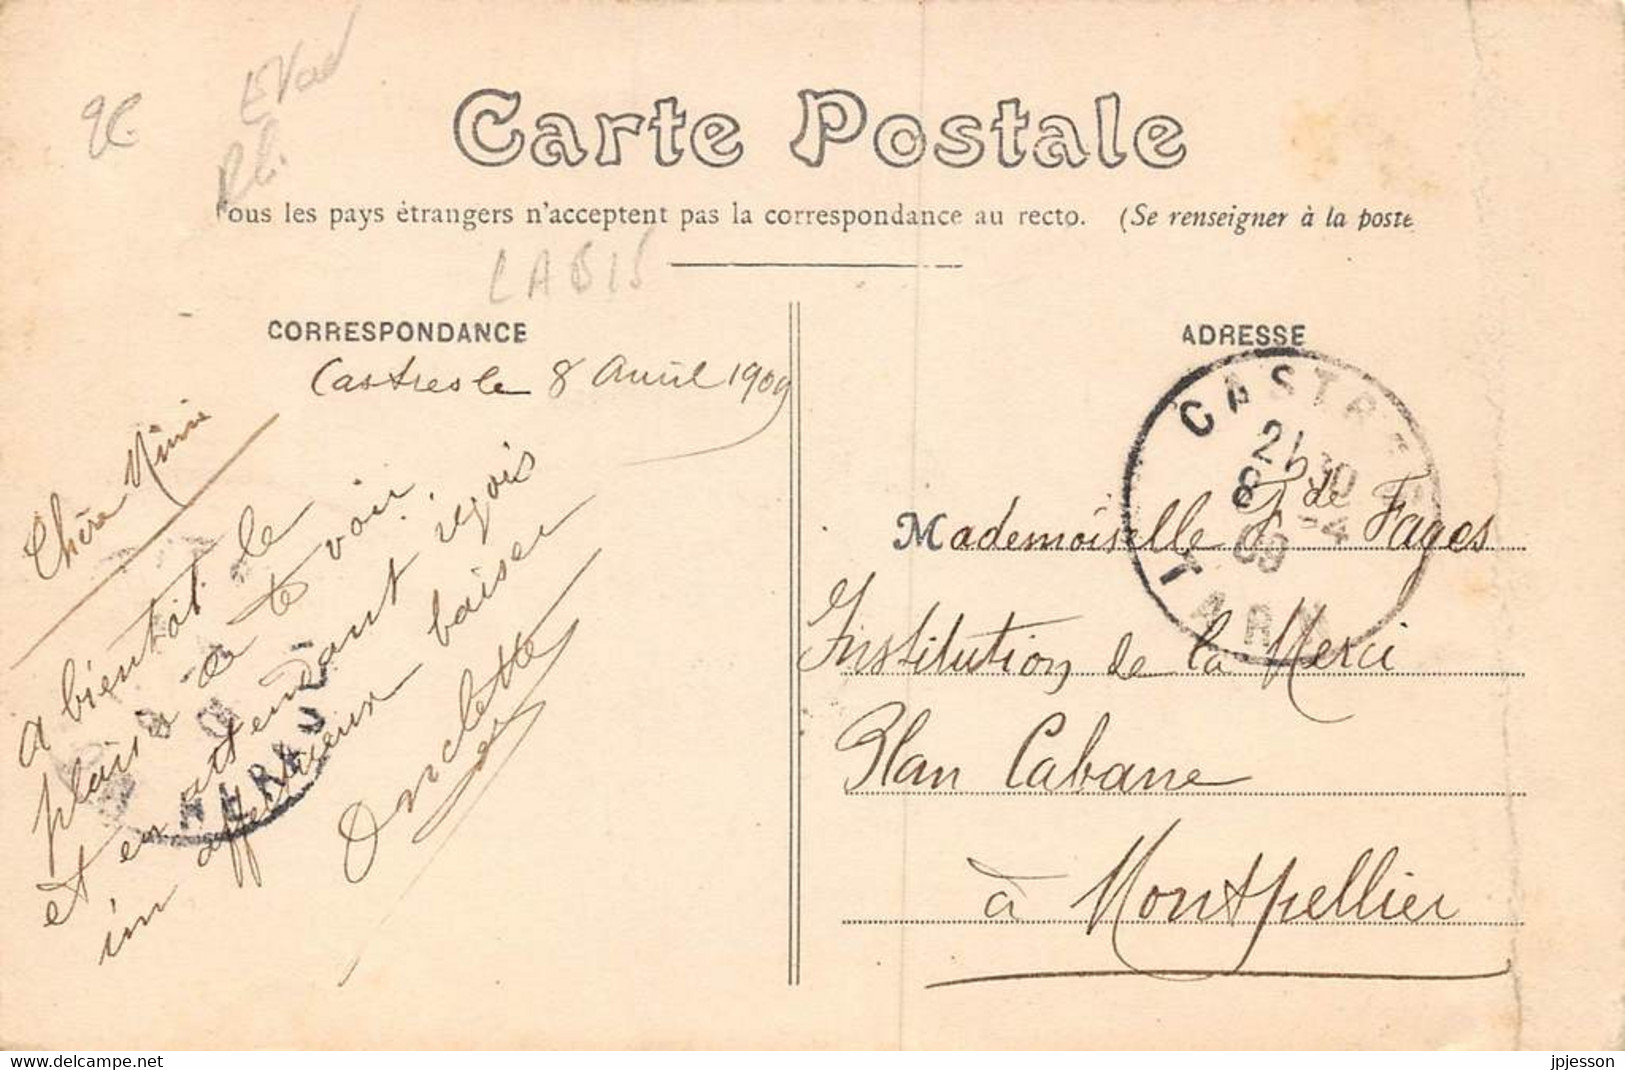 Carte Postale
Tous les pays étrangers n'acceptent pas la correspondance au recto. (Se renseigner à la poste
CORRESPONDANCE
ADRESSE
Castres le 8 Avril 1909
Chère Mimi
A bientôt le
plaisir de te voir,
et en attendant reçois
un affectueux baiser
CASTRES
21 30
8 -4
09
TARN
HERAULT
Mademoiselle J. de Fages
Institution de la Merci
Plan Cabane
à Montpellier
www.delcampe.net
jpjesson